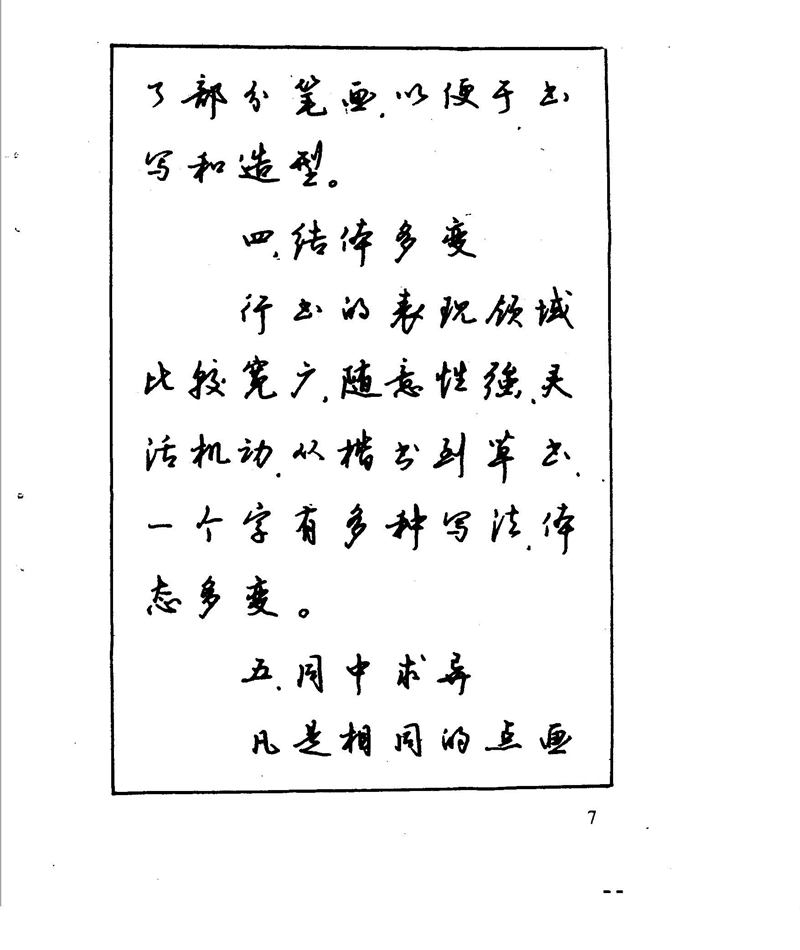 了部分笔画,以便于书
写和造型。
四.结体多变
行书的表现领域
比较宽广,随意性强,灵
活机动.从楷书到草书.
一个字有多种写法,体
态多变。
五.同中求异
凡是相同的点画
7